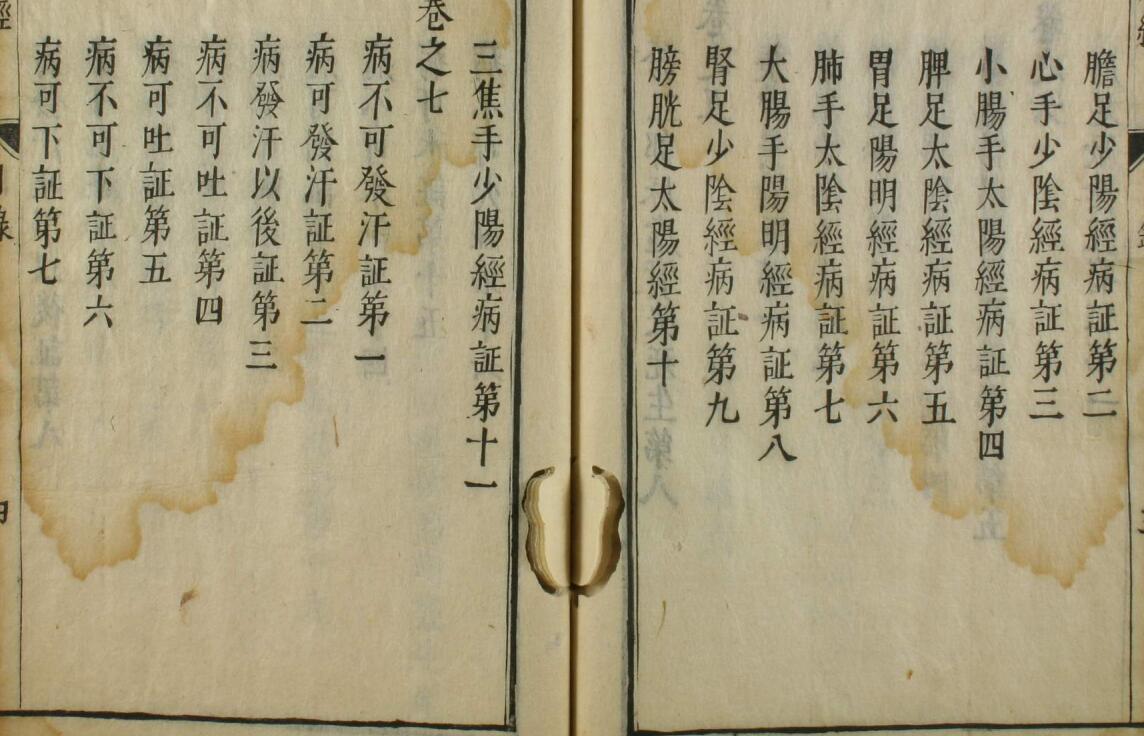 膽足少陽經病証第二
心手少陰經病証第三
小腸手太陽經病証第四
脾足太陰經病証第五
胃足陽明經病証第六
肺手太陰經病証第七
大腸手陽明經病証第八
腎足少陰經病証第九
膀胱足太陽經第十
三焦手少陽經病証第十一
卷之七
病不可發汗証第一
病可發汗証第二
病發汗以後証第三
病不可吐証第四
病可吐証第五
病不可下証第六
病可下証第七